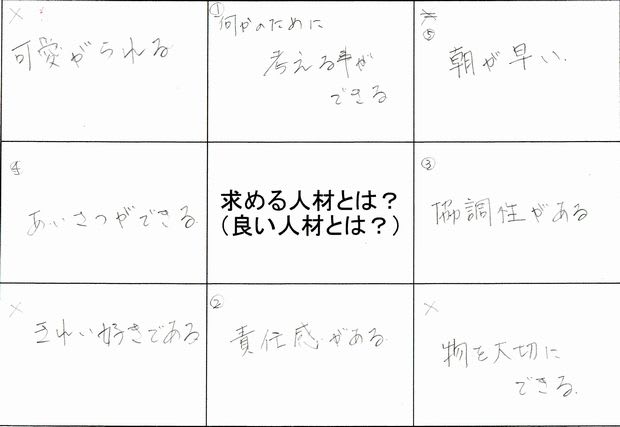 ×
可愛がられる
①
何かのために
考える事が
できる
⑤
朝が早い.
4
あいさつができる
求める人材とは?
(良い人材とは?)
③
協調性がある
×
きれい好きである
②
責任感がある
×
物を大切に
できる.